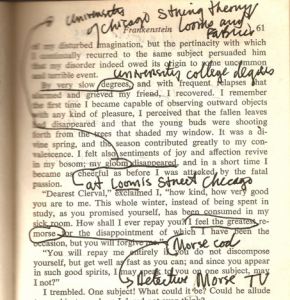 university
of chicago string theory
looms and
Fabric
Frankenstein 61
of my disturbed imagination, but the pertinacity with which
I continually recurred to the same subject persuaded him
that my disorder indeed owed its origin to some uncommon
and terrible event.
university college degrees
By very slow degrees, and with frequent relapses that
alarmed and grieved my friend, I recovered. I remember
the first time I became capable of observing outward objects
with any kind of pleasure, I perceived that the fallen leaves
had disappeared and that the young buds were shooting
forth from the trees that shaded my window. It was a di-
vine spring, and the season contributed greatly to my con-
valescence. I felt also sentiments of joy and affection revive
in my bosom; my gloom disappeared, and in a short time I
became as cheerful as before I was attacked by the fatal
passion.
at Loomis Street Chicago
"Dearest Clerval," exclaimed I, "how kind, how very good
you are to me. This whole winter, instead of being spent in
study, as you promised yourself, has been consumed in my
sick room. How shall I ever repay you? I feel the greatest re-
morse for the disappointment of which I have been the
occasion, but you will forgive me."
Morse cod
"You will repay me entirely if you do not discompose
yourself, but get well as fast as you can; and since you appear
in such good spirits, I may speak to you on one subject, may
I not?"
Detective Morse TV
I trembled. One subject! What could it be? Could he allude